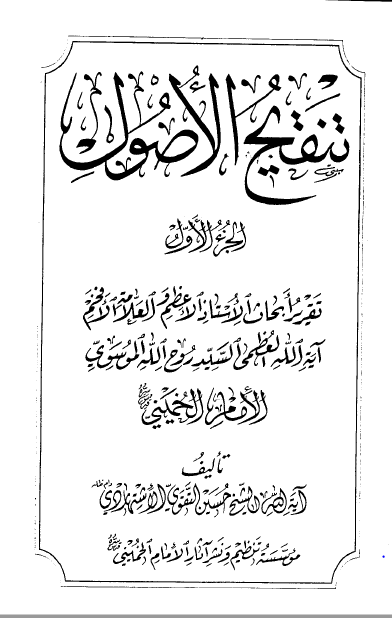 تنقيح الأصول
الجزء الأول
تقرير أبحاث الأستاذ الأعظم والعلامة الأفخم
آية الله العظمى السيد روح الله الموسوي
الإمام الخميني
تأليف
آية الله الشيخ حسين التقوي الإشتهاردي دام ظله
مؤسسة تنظيم ونشر آثار الإمام الخميني